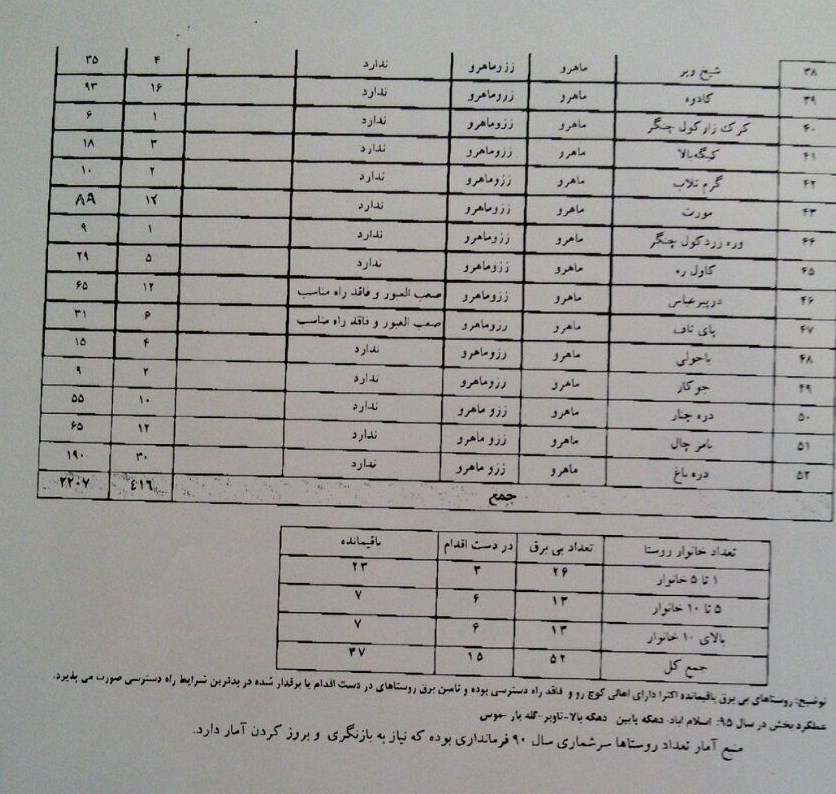 ۳۸ شیخ ویر ماهرو ززوماهرو ندارد ۴ ۳۵
۳۹ کادوه ماهرو ززوماهرو ندارد ۱۶ ۹۳
۴۰ کرک زار کول چنگر ماهرو ززوماهرو ندارد ۱ ۶
۴۱ کیگه بالا ماهرو ززوماهرو ندارد ۳ ۱۸
۴۲ گرم تلاب ماهرو ززوماهرو ندارد ۲ ۱۰
۴۳ مورت ماهرو ززوماهرو ندارد ۱۷ ۸۹
۴۴ وره زرد کول چنگر ماهرو ززوماهرو ندارد ۱ ۹
۴۵ کاول ره ماهرو ززوماهرو ندارد ۵ ۲۹
۴۶ درپیرعباس ماهرو ززوماهرو صعب العبور و فاقد راه مناسب ۱۲ ۶۵
۴۷ پای تاف ماهرو ززوماهرو صعب العبور و فاقد راه مناسب ۶ ۳۱
۴۸ باحولی ماهرو ززوماهرو ندارد ۴ ۱۵
۴۹ جوکار ماهرو ززوماهرو ندارد ۲ ۹
۵۰ دره چنار ماهرو ززو ماهرو ندارد ۱۰ ۵۵
۵۱ بامر چال ماهرو ززو ماهرو ندارد ۱۲ ۶۵
۵۲ دره باغ ماهرو ززو ماهرو ندارد ۳۰ ۱۹۰
جمع ٤١٦ ٢٢٠٧
تعداد خانوار روستا تعداد بی برق در دست اقدام باقیمانده
۱ تا ۵ خانوار ۲۶ ۳ ۲۳
۵ تا ۱۰ خانوار ۱۳ ۶ ۷
بالای ۱۰ خانوار ۱۳ ۶ ۷
جمع کل ۵۲ ۱۵ ۳۷
توضیح: روستاهای بی برق باقیمانده اکثرا دارای اهالی کوچ رو و فاقد راه دسترسی بوده و تامین برق روستاهای در دست اقدام یا برقدار شده در بدترین شرایط راه دسترسی صورت می پذیرد.
عملکرد بخش در سال ۹۵: اسلام اباد- دهکه پایین دهکه بالا-تاویر-گله یار-موس
منبع آمار تعداد روستاها سرشماری سال ۹۰ فرمانداری بوده که نیاز به بازنگری و بروز کردن آمار دارد.